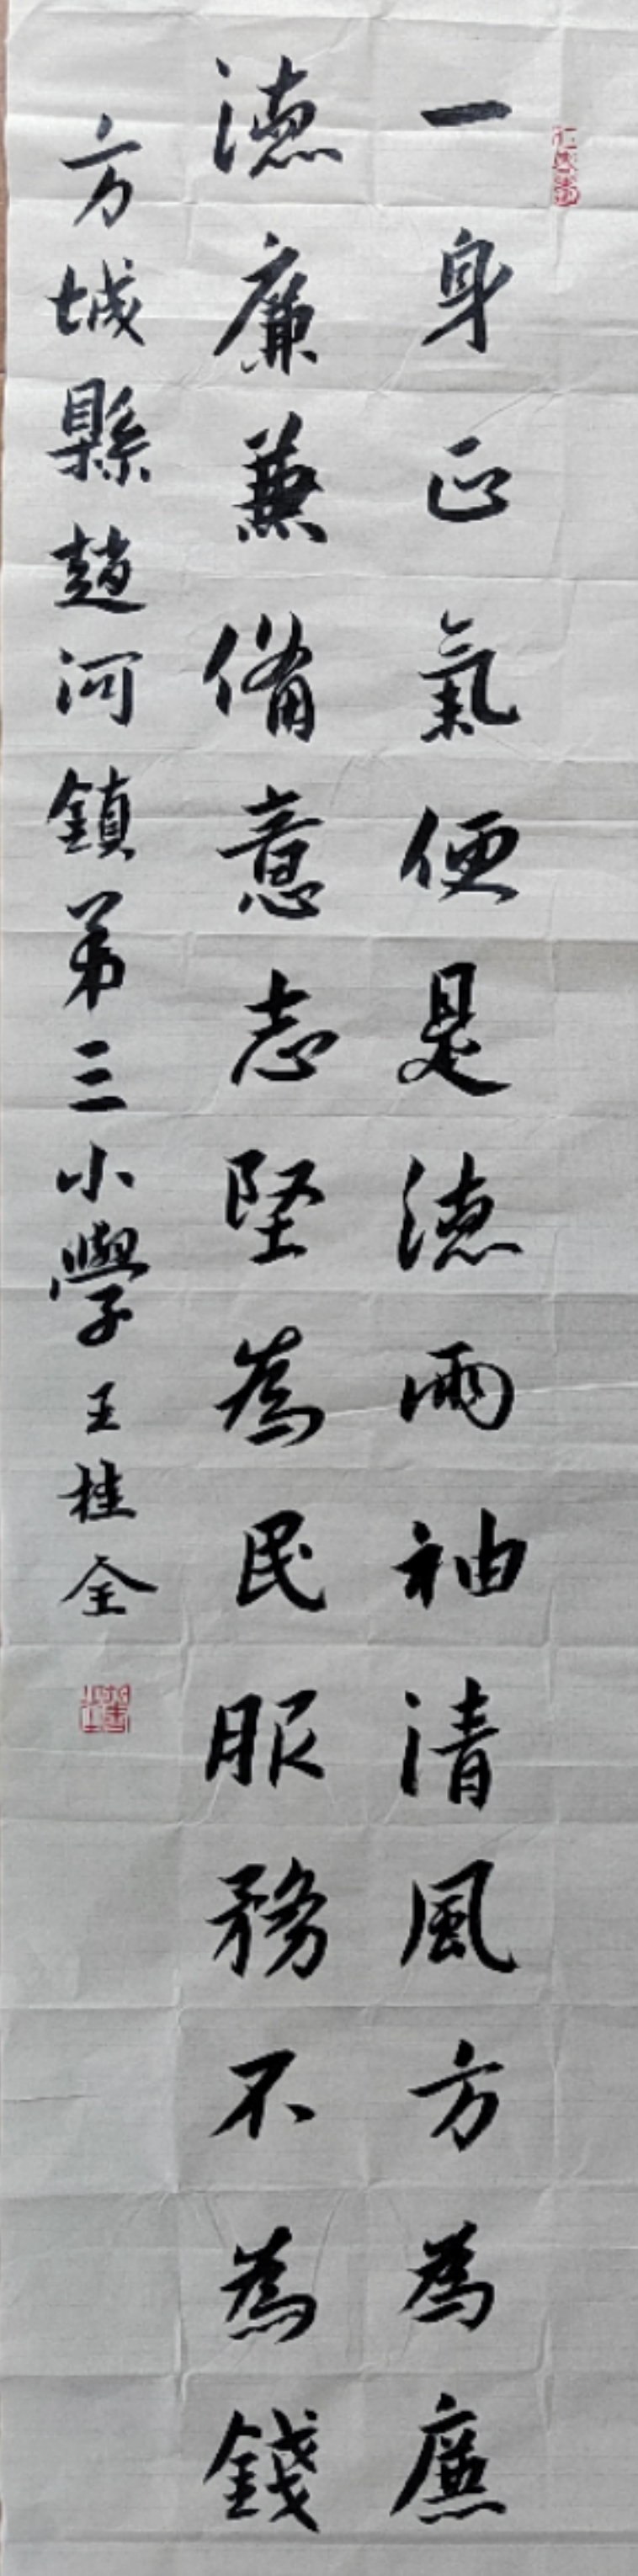 一身正氣便是德兩袖清風方為廉
德廉兼備意志堅為民服務不為錢
方城縣趙河鎮第三小學王桂全